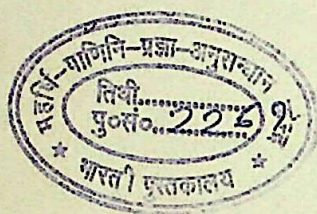 महर्षि-पाणिनि-प्रज्ञा-अनुसन्धान
तिथी..........
पु०सं०...226
भारती पुस्तकालय